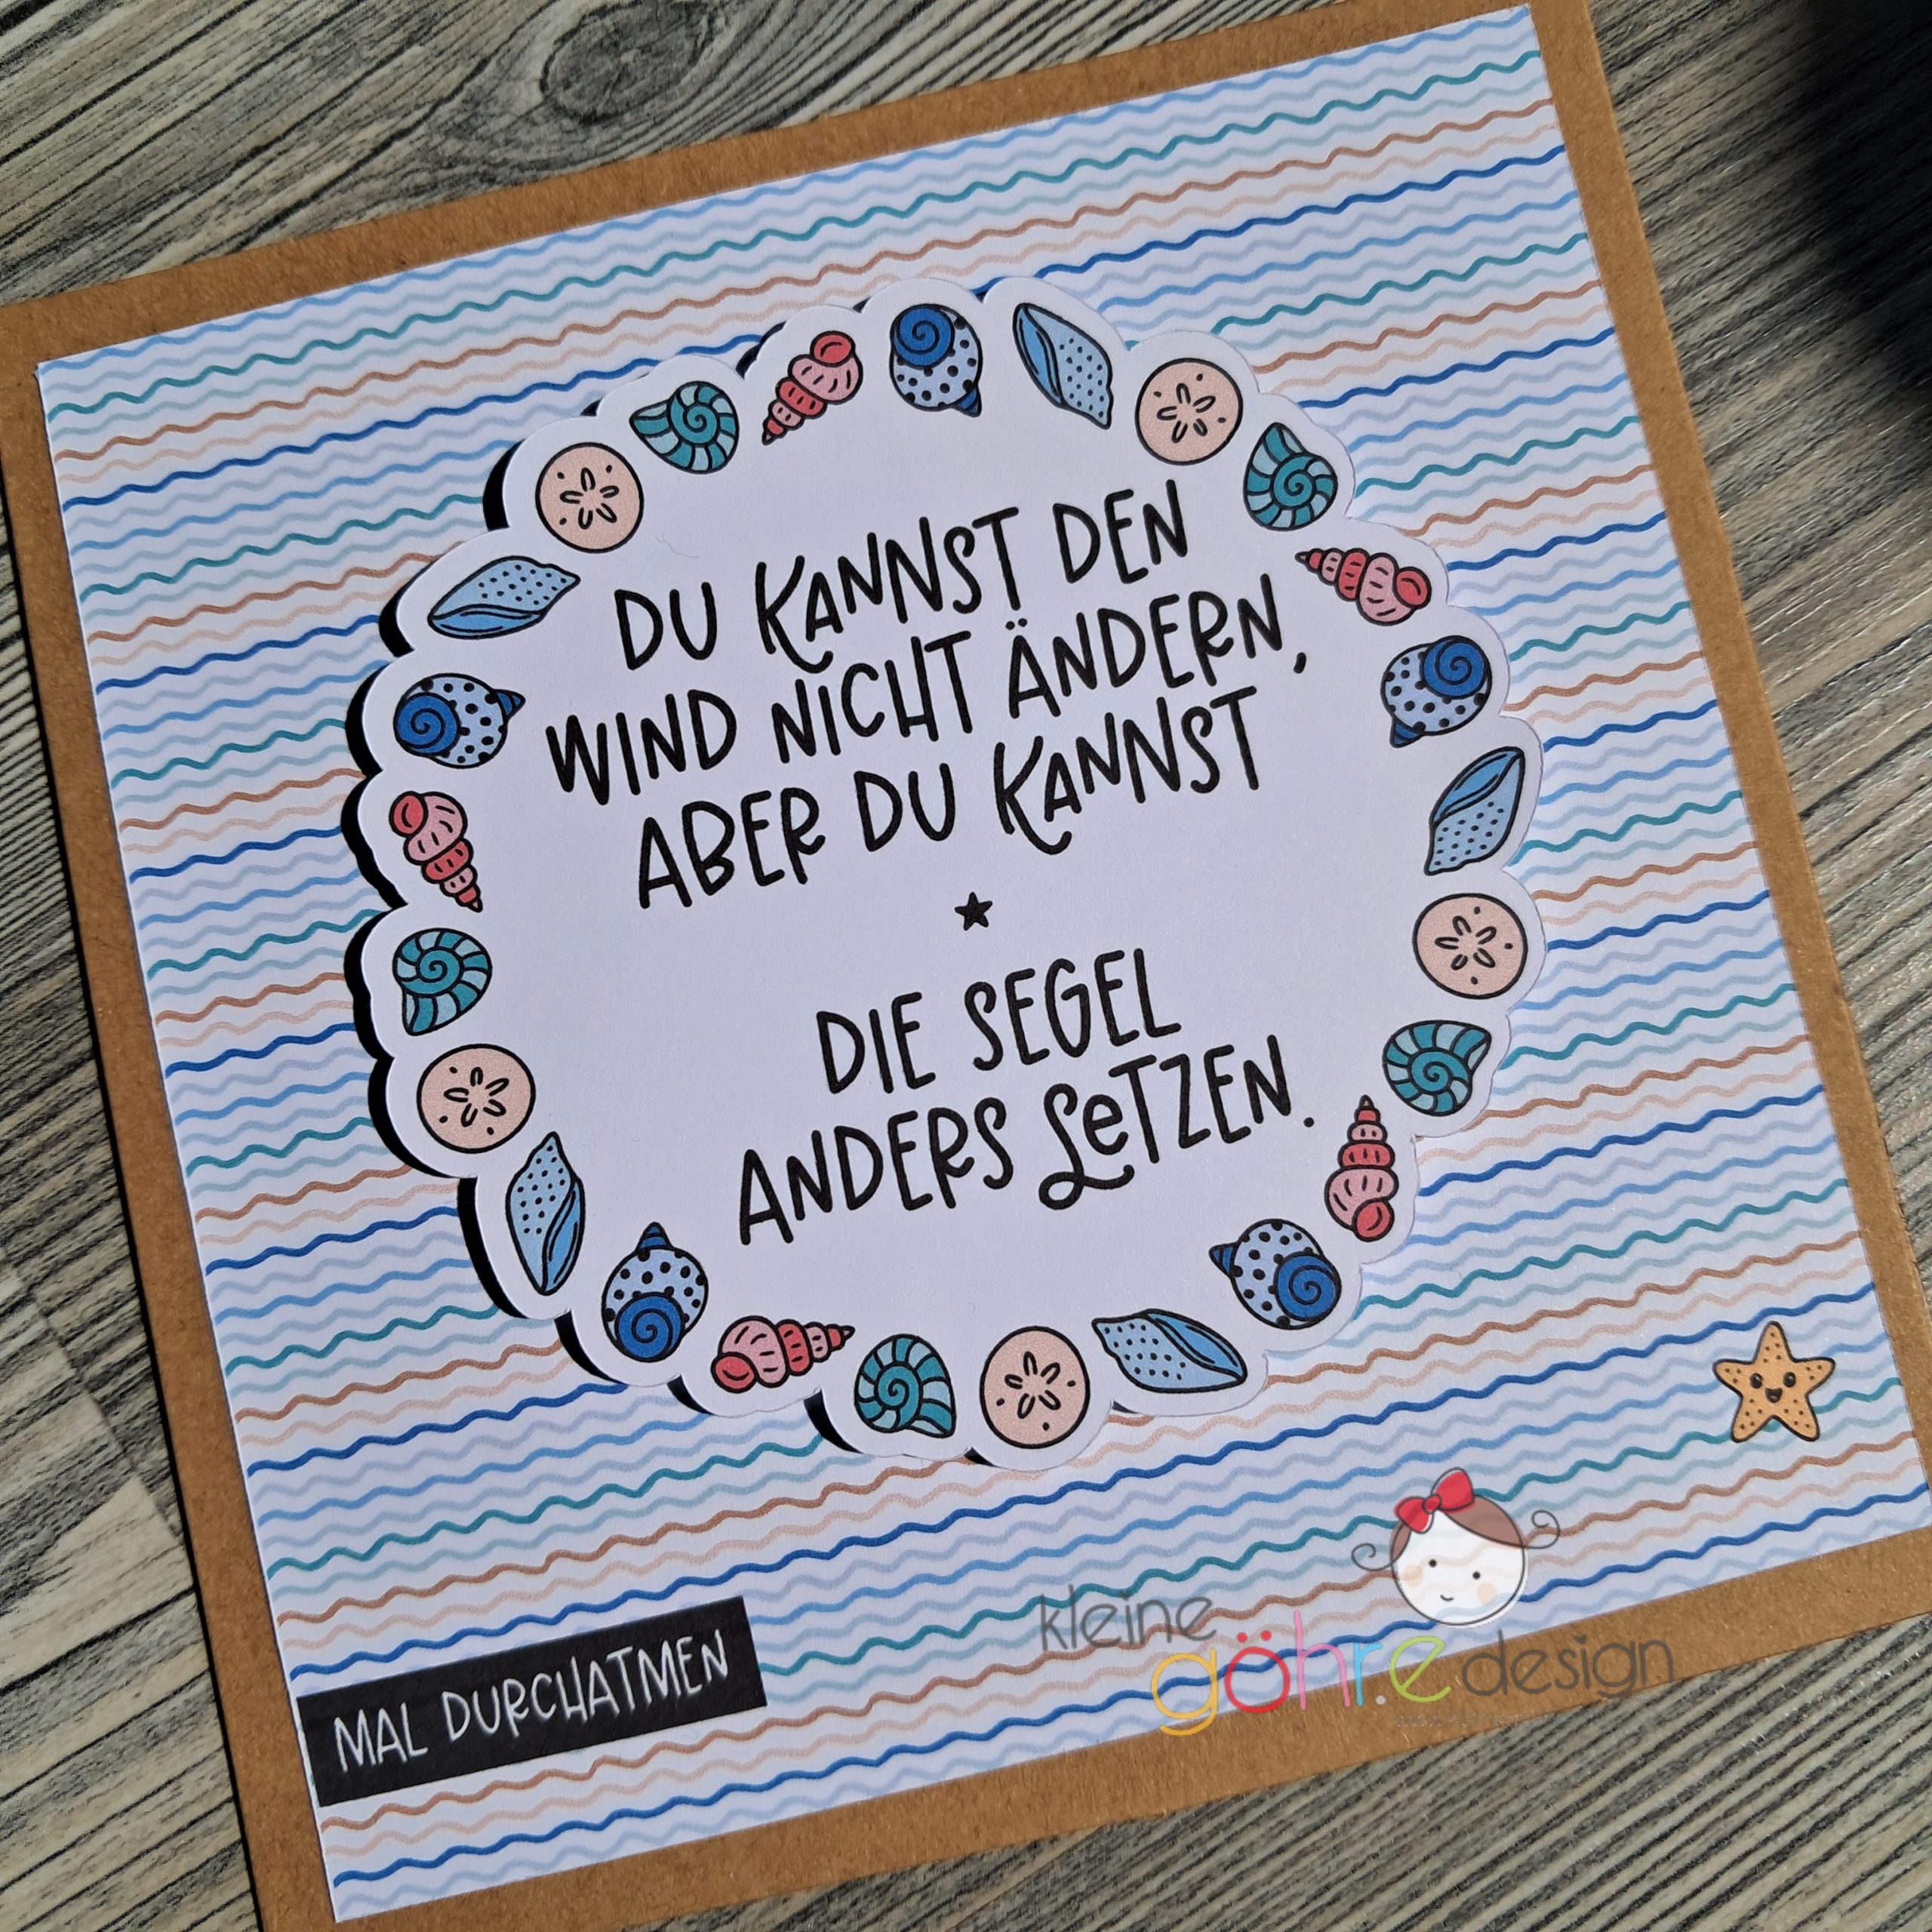 DU KANNST DEN
WIND NICHT ÄNDERN,
ABER DU KANNST
DIE SEGEL
ANDERS SETZEN.
MAL DURCHATMEN
kleine
göhr.e design